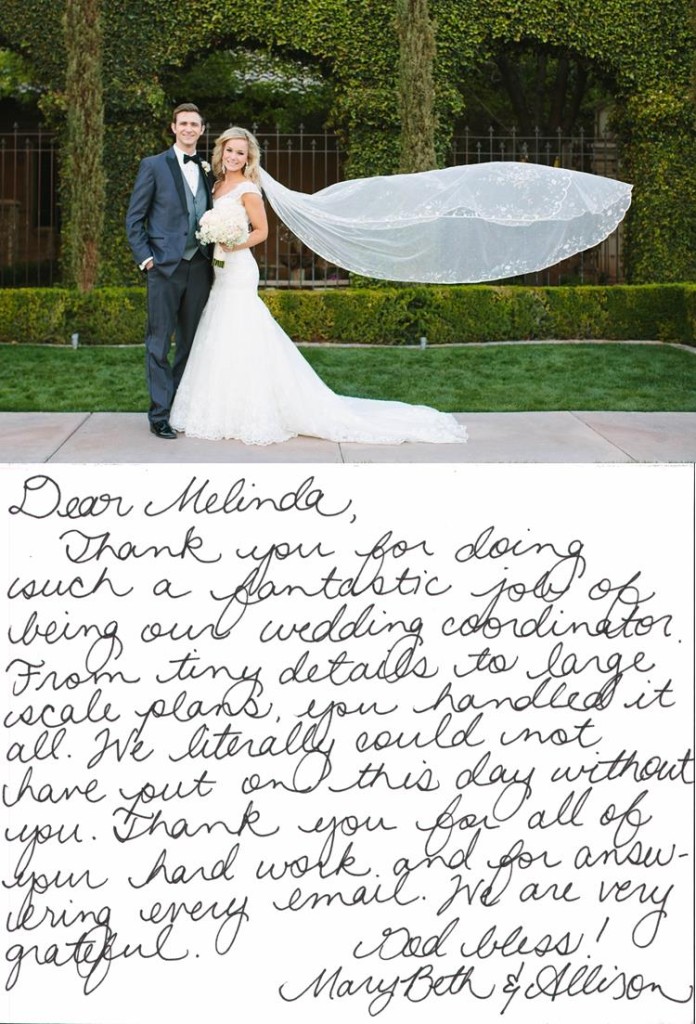 Dear Melinda,
Thank you for doing
such a fantastic job of
being our wedding coordinator.
From tiny details to large
scale plans, you handled it
all. We literally could not
have put on this day without
you. Thank you for all of
your hard work and for answ-
ering every email. We are very
grateful. God bless!
Mary Beth & Allison